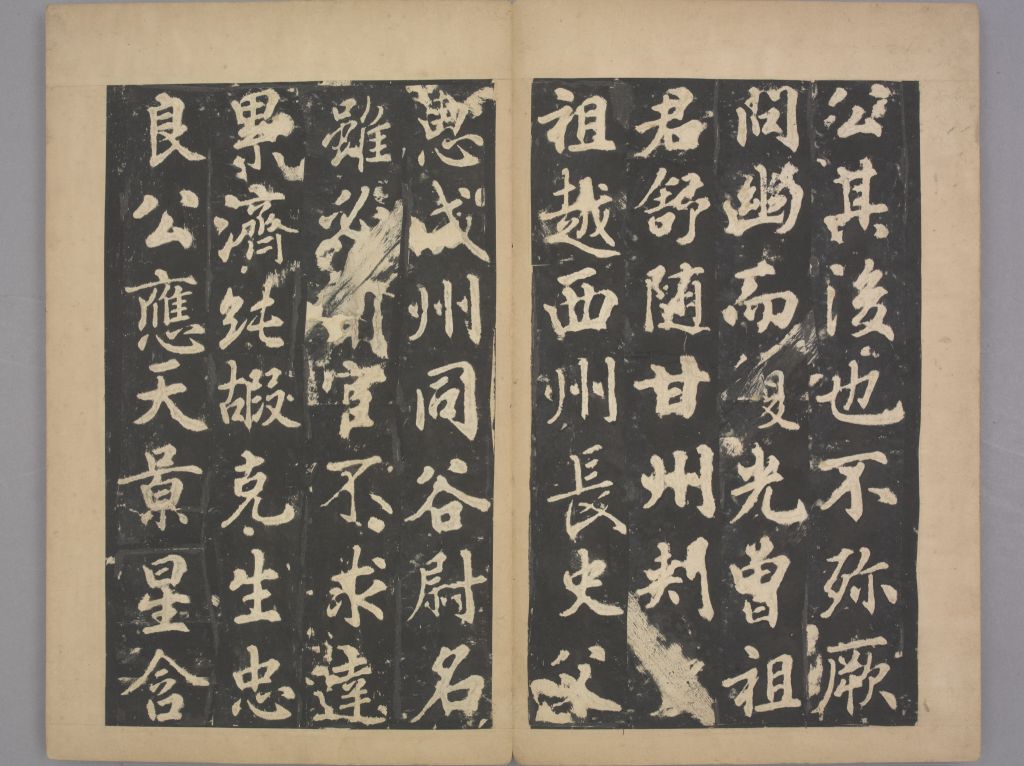 公其後也不弥厥
問幽而復光曾祖
君舒随甘州刺
祖越西州長史父
恵成州同谷尉名
雖官不求達
累濟純嘏克生忠
良公應天景星含